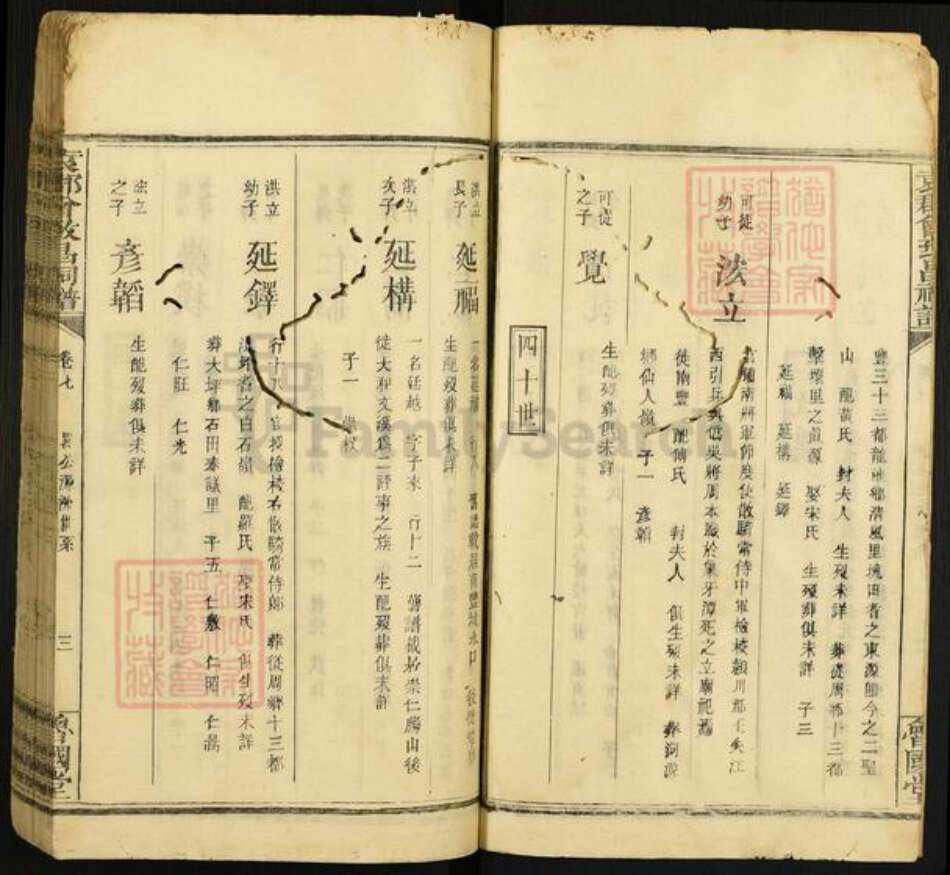 豐三十三都龍珠鄉清風里塊田者之東源卽今之二聖
山 配黃氏 封夫人 生歿未詳 葬從周鄉十三都
擊壤里之眞源 娶宋氏 生歿葬俱未詳 子三
延福 延構 延鐸
可從
幼子
法立
南州軍節度使散騎常侍中軍檢校潁川郡王矣江
西引兵與僞吳將周本戰於象牙潭死之立廟祀焉
徙南豐 配傅氏 封夫人 俱生歿未詳 葬洞源
鄉仙人嶺 子一 彥韜
四十世
可從
之子
覺
生配歿葬俱未詳
洪立
長子
延福
生配歿葬俱未詳
洪立
次子
延構
一名廷越 字子來 行十二 舊譜載於崇仁騰山後
從大和文溪爲二評事之族 生配歿葬俱未詳
子一 崇
洪立
幼子
延鐸
官授檢校右散騎常侍 葬從周鄉十三都
之白石嶺 配羅氏 娶宋氏 俱生歿未詳
葬大坪鄉石田奉議里 子五 仁敷 仁昭 仁暠
仁旺 仁光
法立
之子
彥韜
生配歿葬俱未詳
卷七
三
會國堂
會國堂
FamilySearch